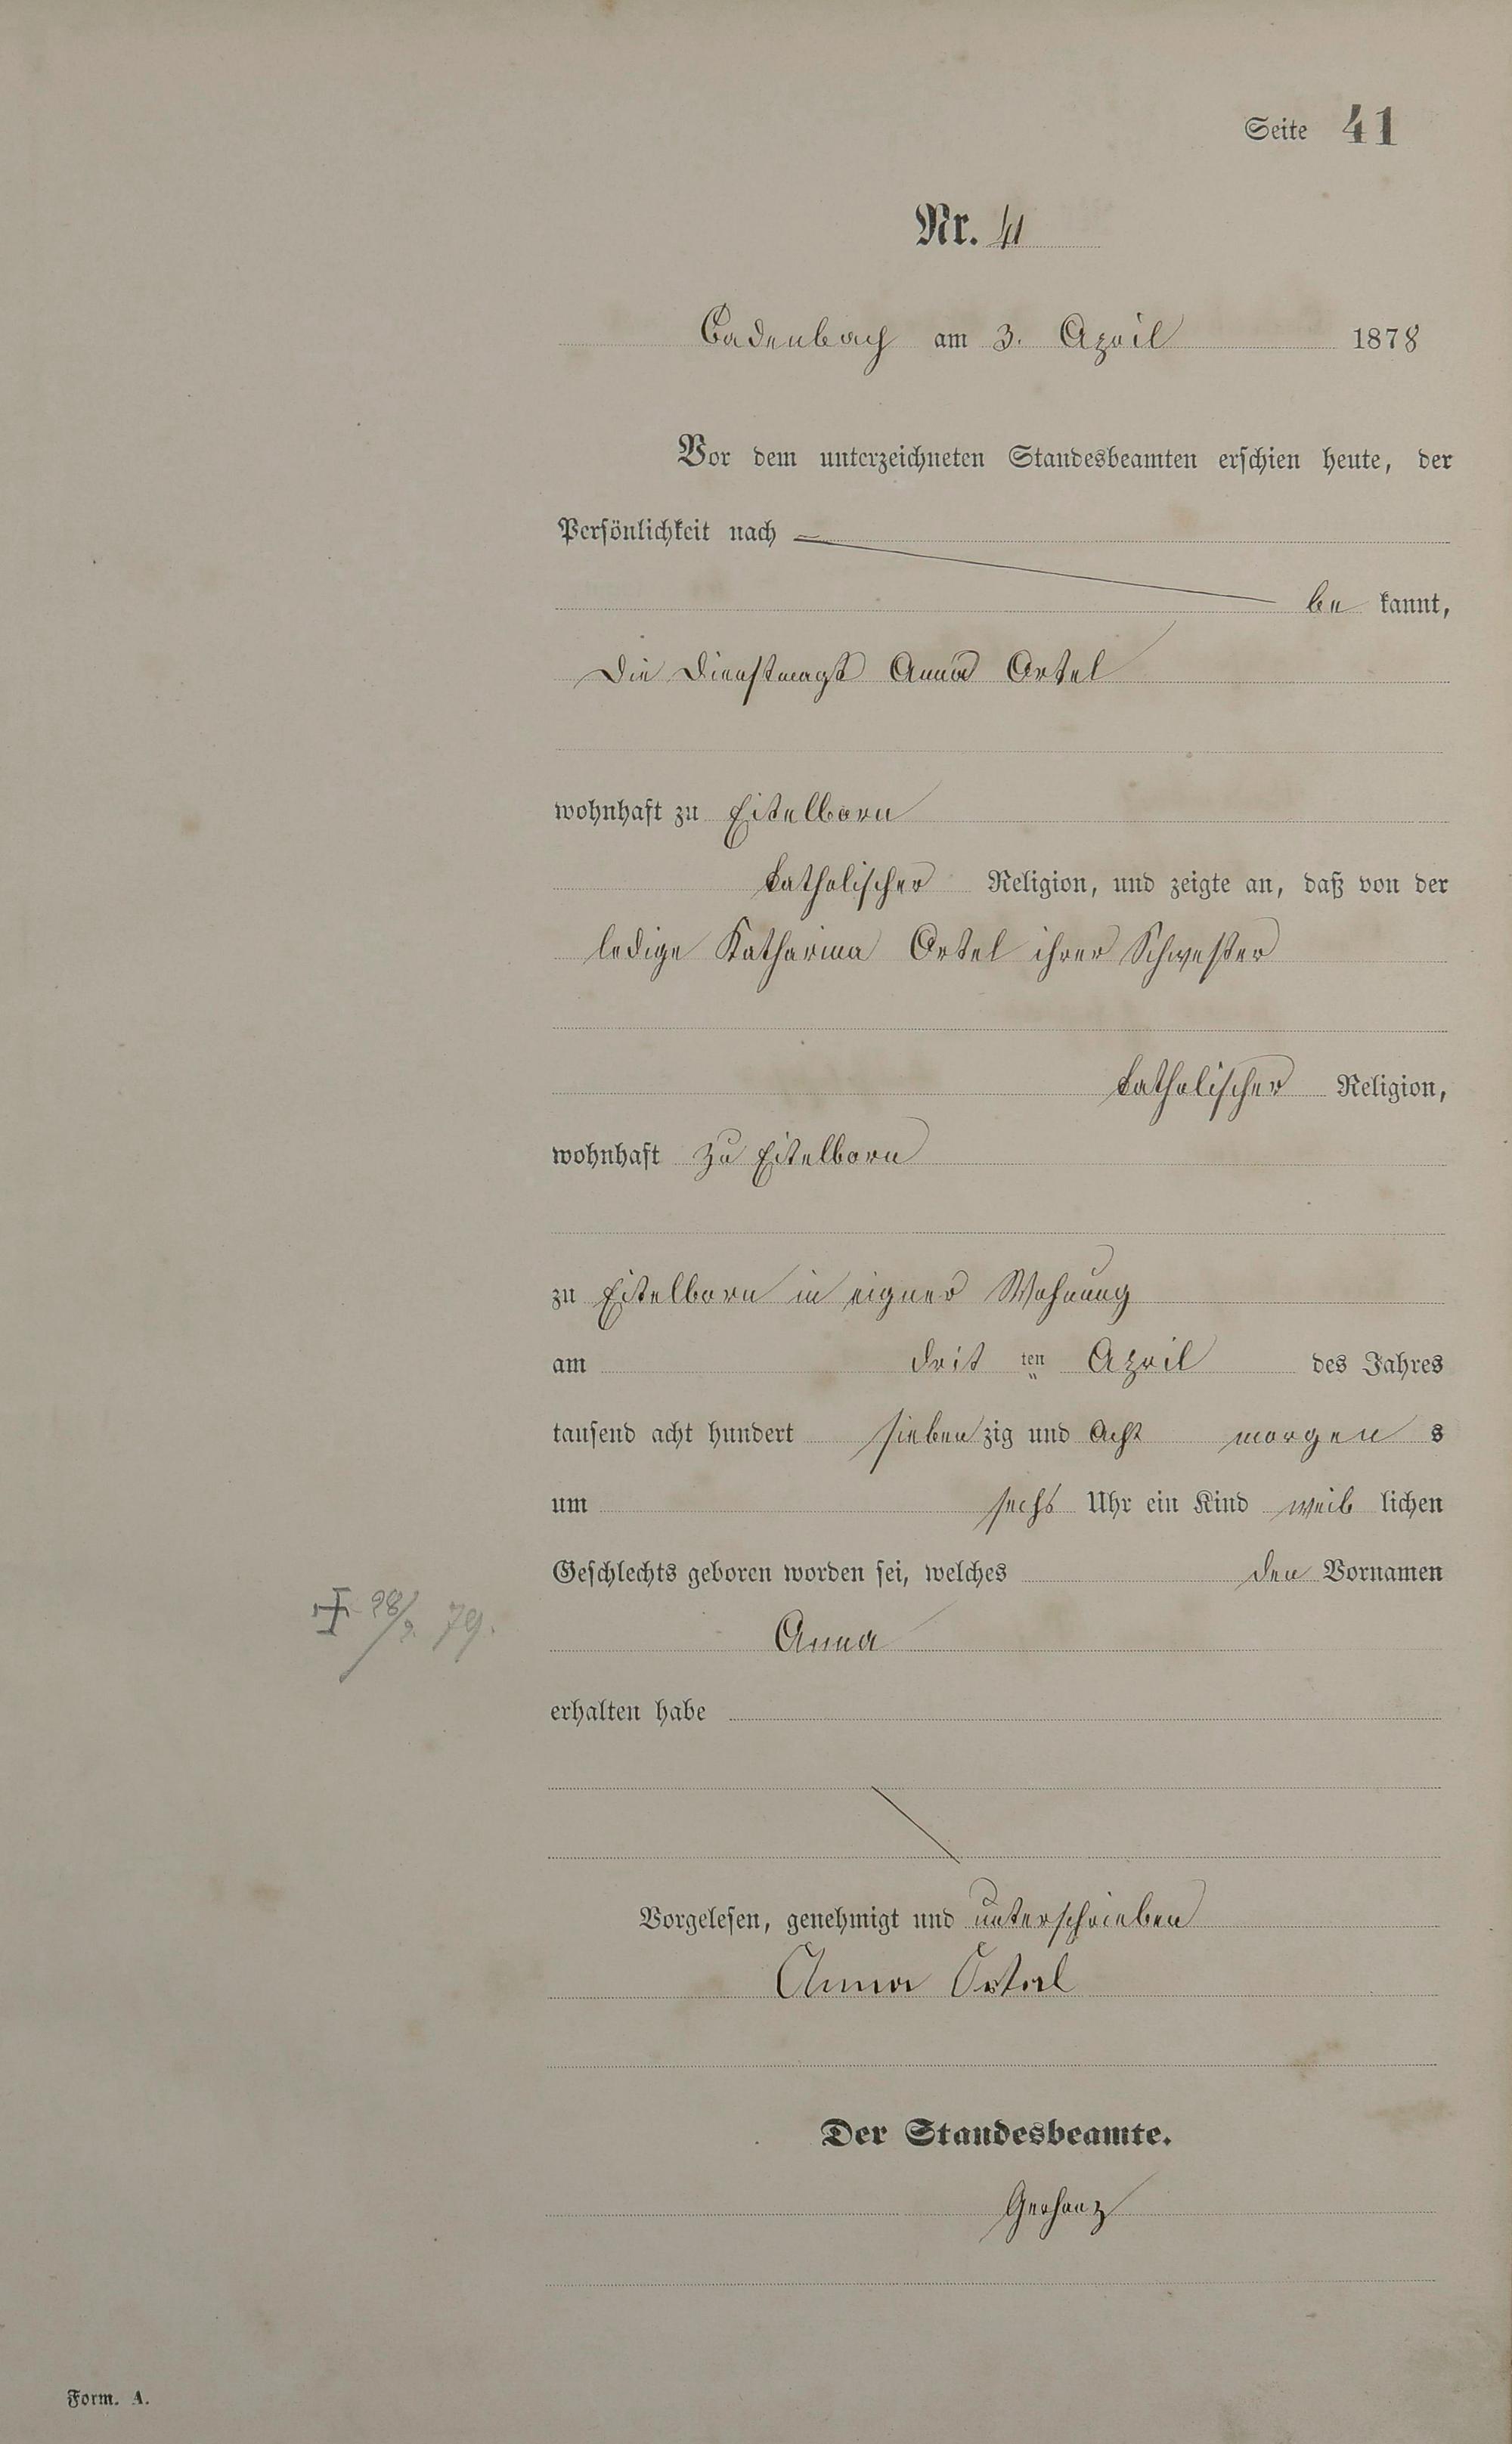 Seite 41
Nr. 41
Cadenbach am 3. April 1878
Vor dem unterzeichneten Standesbeamten erschien heute, der
Persönlichkeit nach
be kannt,
Die Dienstmagt Anna Ortel
wohnhaft zu Eitelborn
katholischer Religion, und zeigte an, daß von der
ledige Katharina Ortel ihrer Schwester
katholischer Religion,
wohnhaft zu Eitelborn
zu Eitelborn in eigner Wohnung
am drit ten April des Jahres
tausend acht hundert sieben zig und acht morgen s
um sechs Uhr ein Kind weib lichen
Geschlechts geboren worden sei, welches den Vornamen
Anna
erhalten habe
Vorgelesen, genehmigt und unterschrieben
Anna Ortel
Der Standesbeamte.
Gerhanz
79.
Form. A.